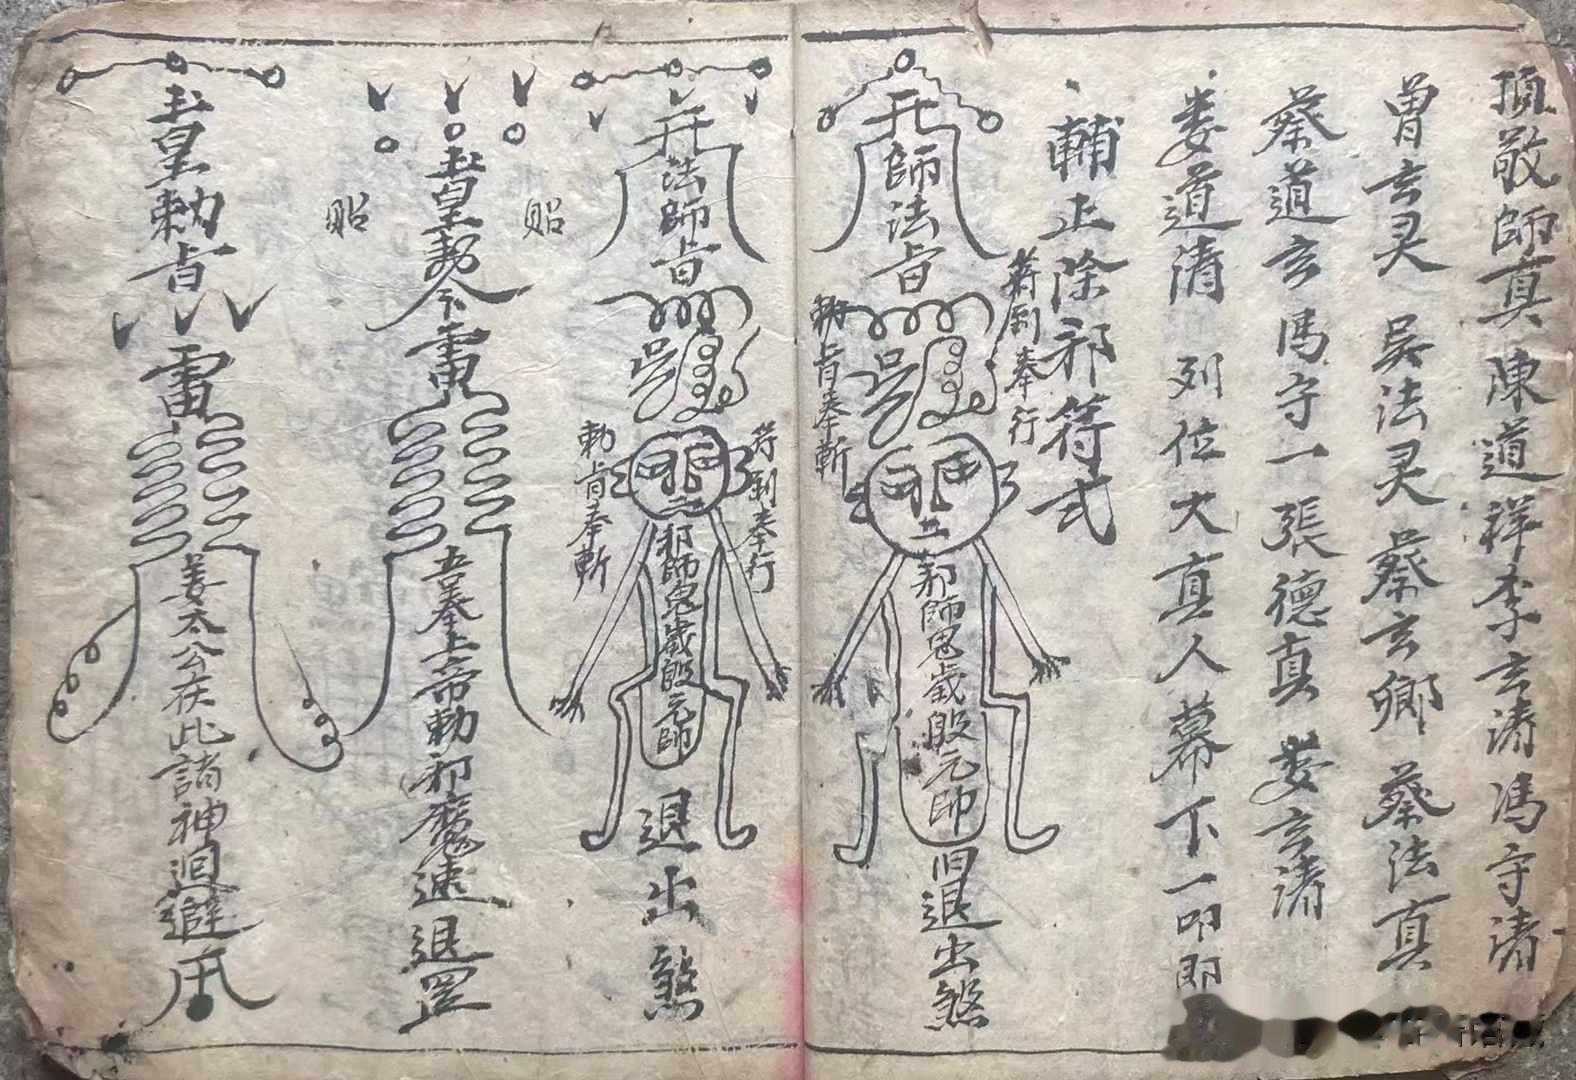 頂敬師真陳道祥李玄清馮守清
曾玄灵 吴法灵 蔡玄卿 蔡法真
蔡道玄馮守一張德真 娄玄清
娄道清 列位大真人幕下一叩即
輔正除邪符式
符到奉行
師法旨
邪師鬼歲殷元帥
旧退出煞
勅旨奉斬
符到奉行
法師旨
邪師鬼歲殷元帥
退出煞
勅旨奉斬
贴
玉皇勅令雷
吾奉上帝勅邪魔速退罡
贴
玉皇勅旨
雷
姜太公在此諸神迴避